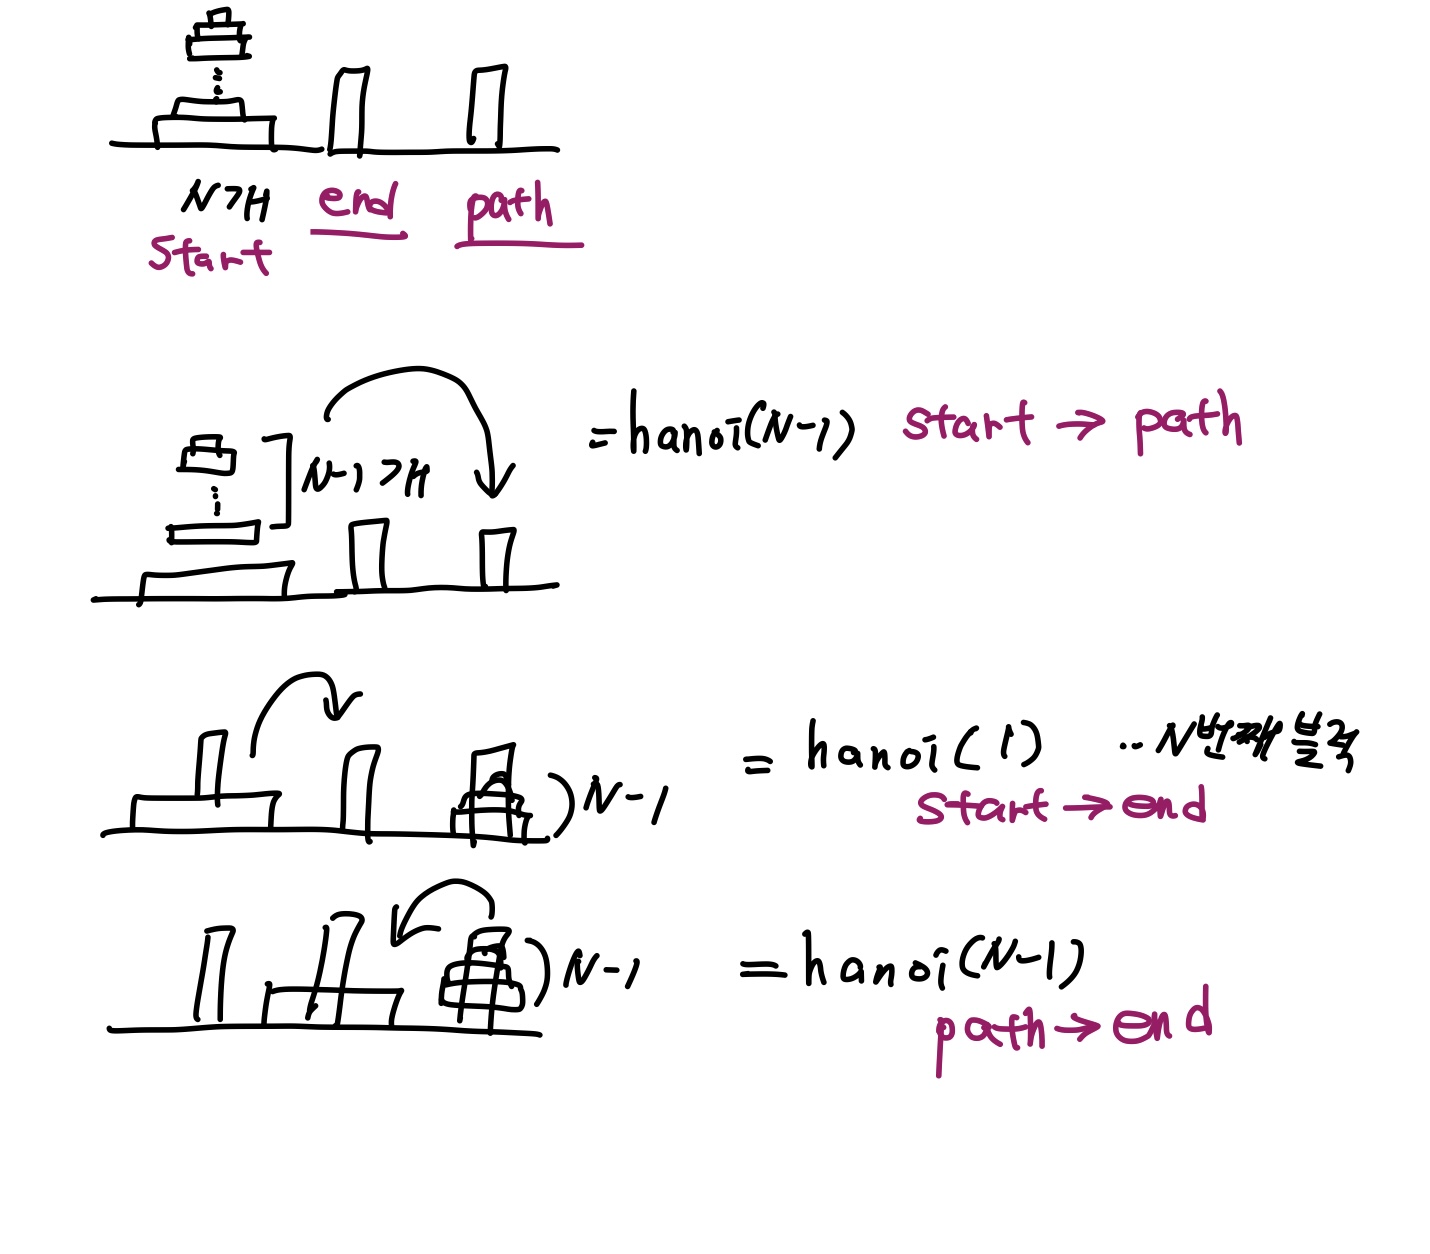 N개 end path
start
N-1개 = hanoi(N-1) start → path
) N-1 = hanoi(1) .. N번째 블럭
start → end
) N-1 = hanoi(N-1)
path → end